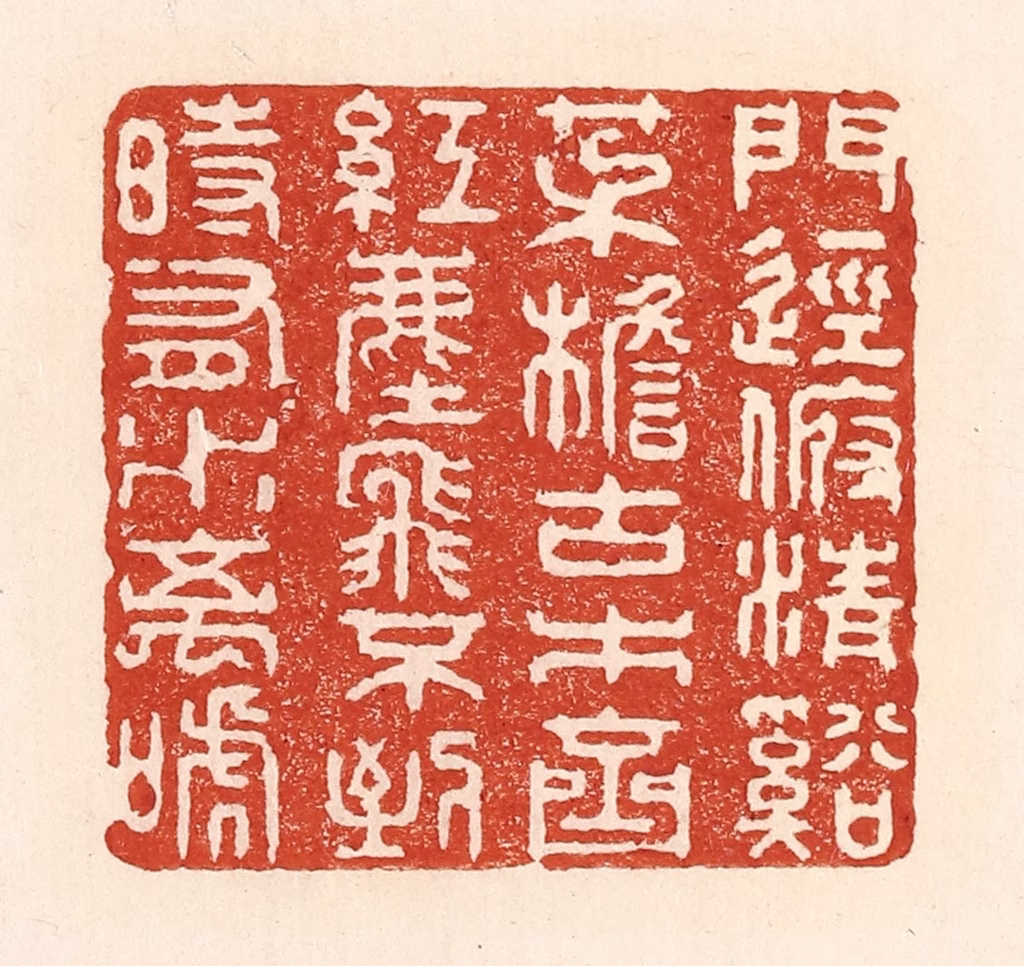 門逕俯清谿
茅檐古木齊
紅塵飛不到
時有水禽嗁